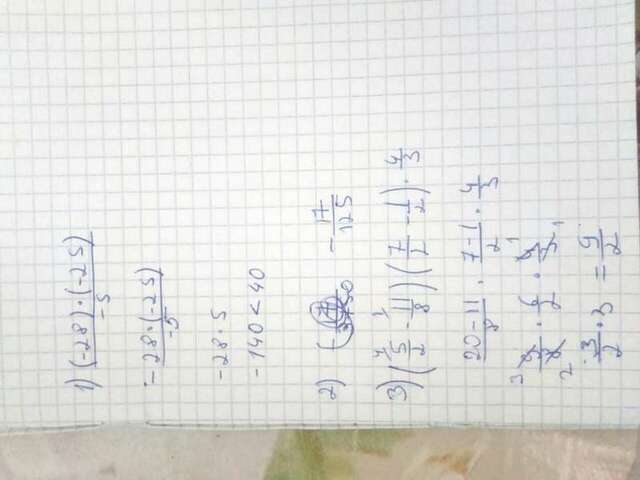 1) (-28)·(-25) / -5
-28·(-25) / -5
-28·5
-140<40
2) - 17/125
3) (5/2 - 11/8) (7/2 - 1/2) · 4/3
20-11/8 · 7-1/2 · 4/3
3/2 · 3 = 9/2